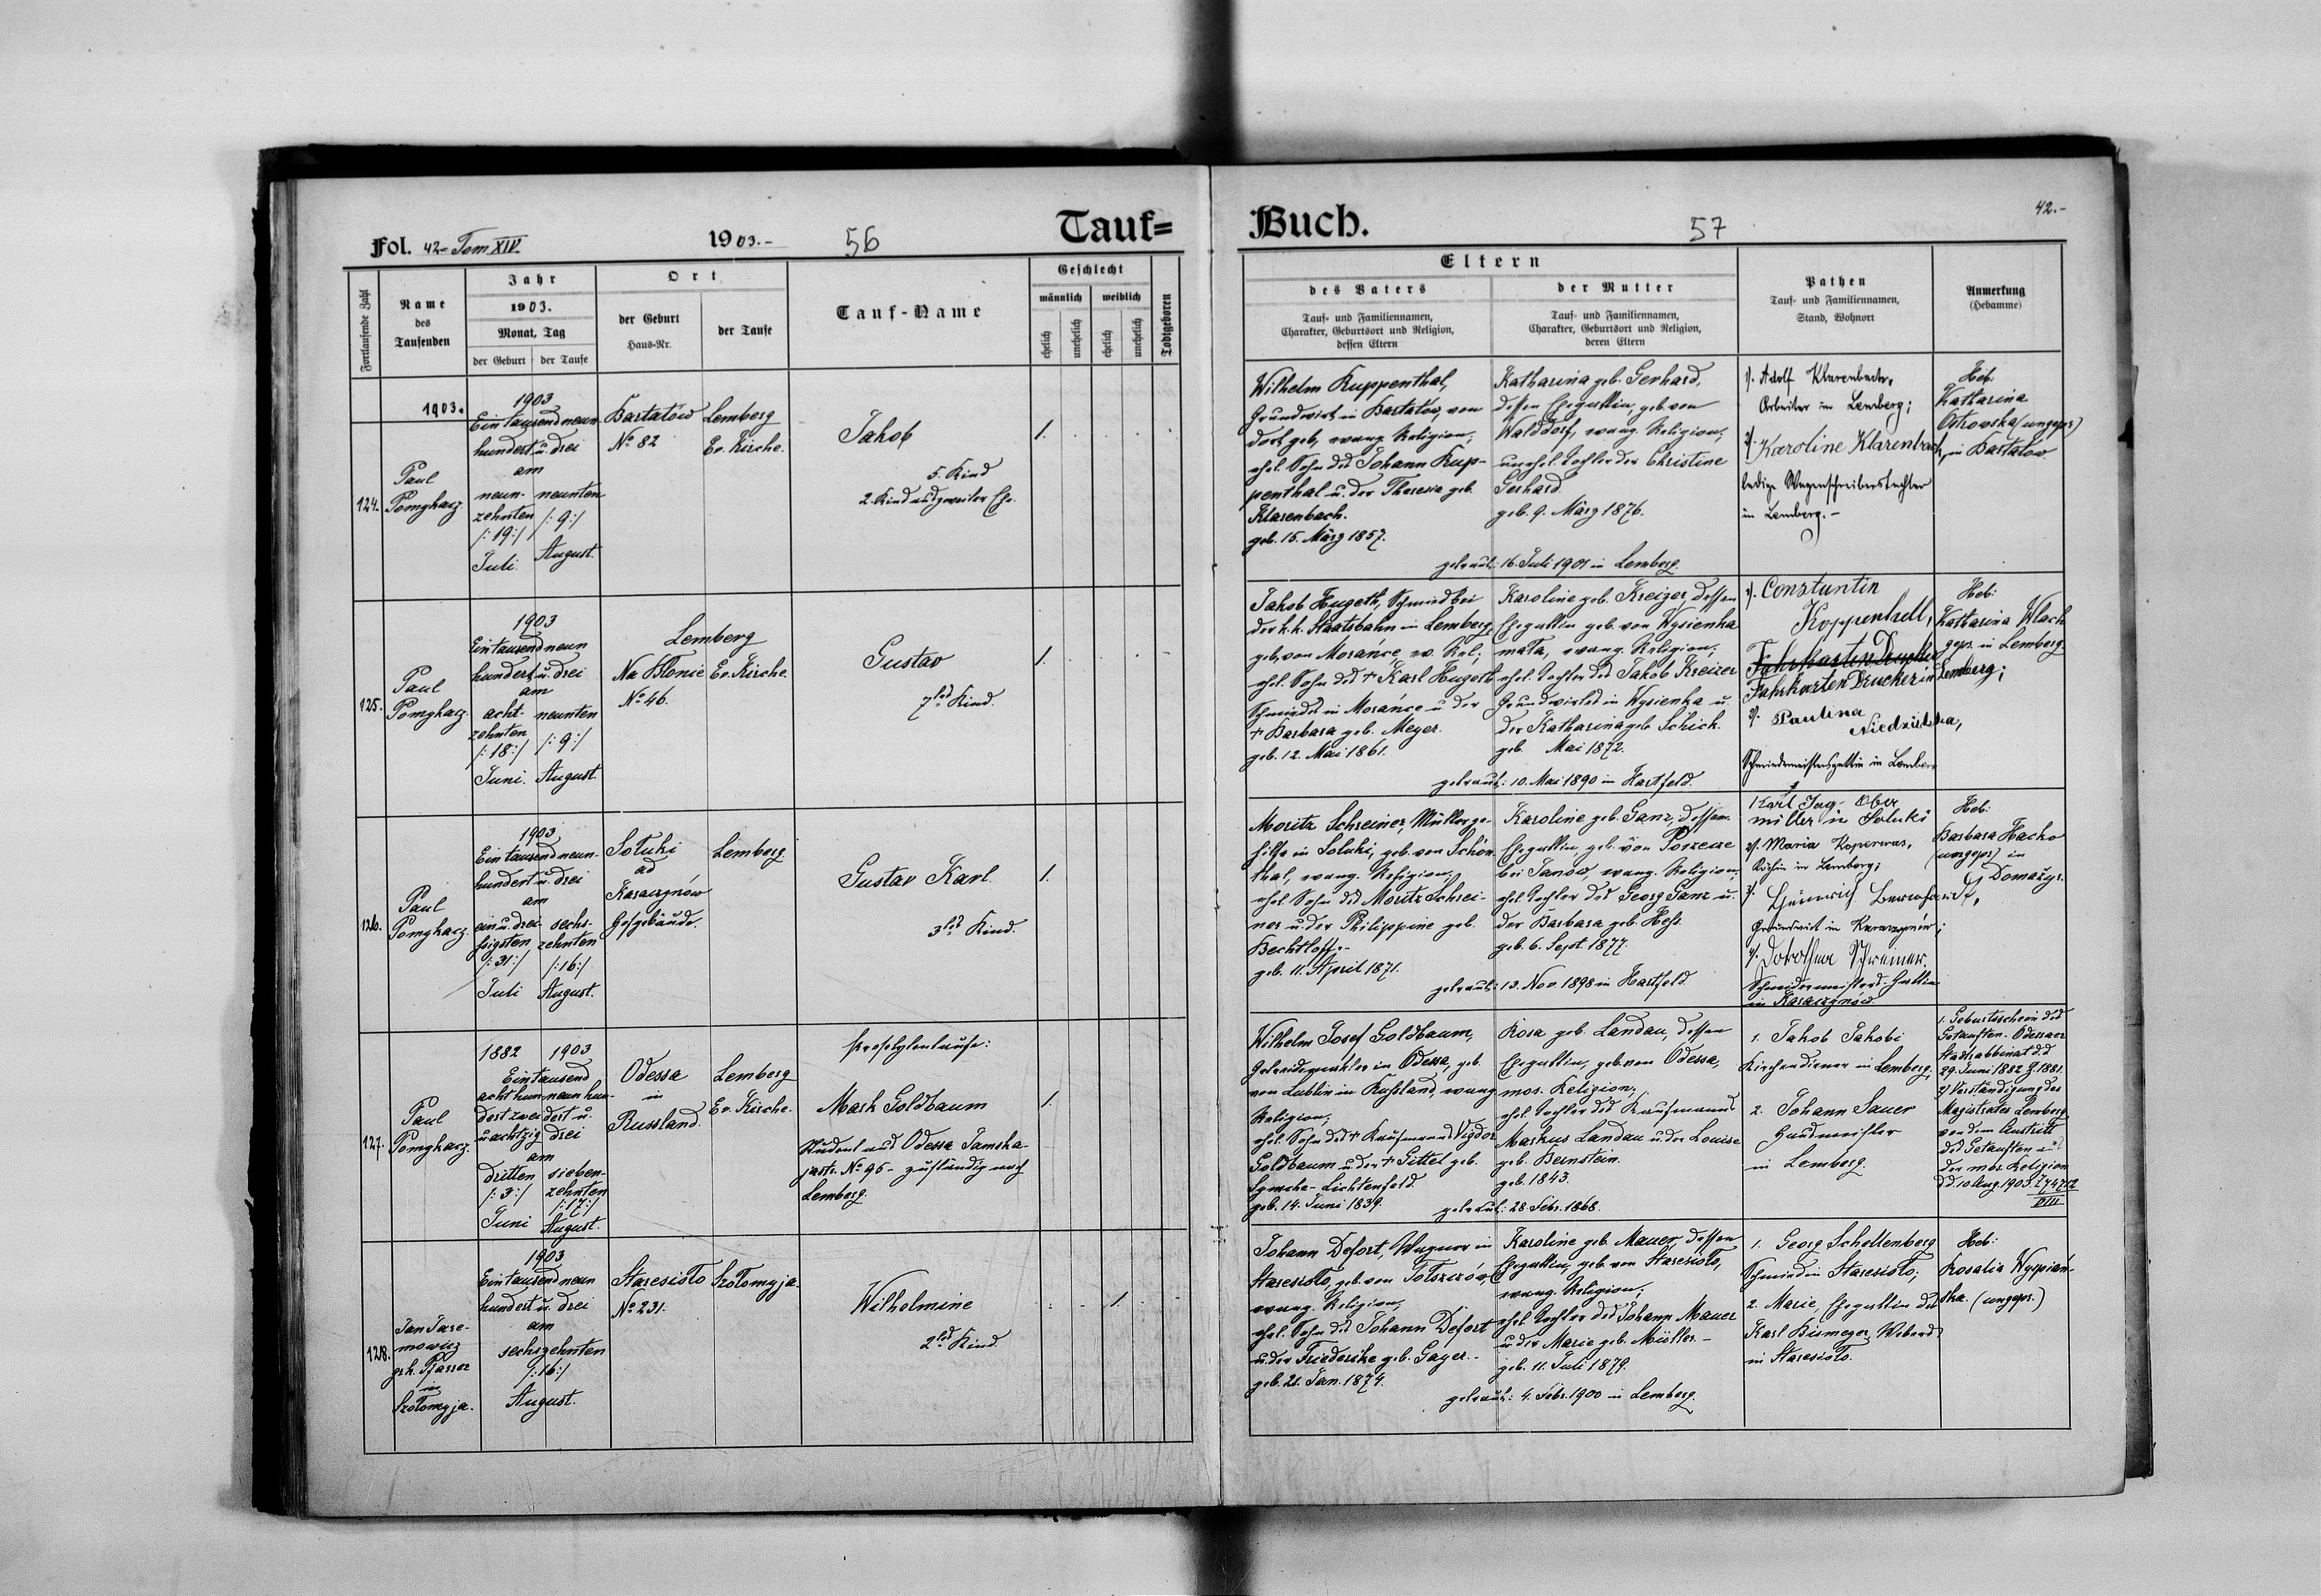 Fol. 42- Tom XIV.
1903.-
56
Tauf=
Fortlaufende Zahl
Name
des
Taufenden
Jahr
1903.
Monat, Tag
der Geburt
der Taufe
Ort
der Geburt
Haus-Nr.
der Taufe
Tauf-Name
Geschlecht
männlich
weiblich
ehelich
unehelich
ehelich
unehelich
Todtgeboren
1903.
124.
Paul
Pomykacz.
1903
Ein tausend neun
hundert u. drei
am
neun-
zehnten
/:19:/
Juli.
neunten
/:9:/
August.
Bartatów
No 82
Lemberg
Ev. Kirche.
Jakob
5. Kind
2. Kind aus zweiter Ehe.
1.
125.
Paul
Pomykacz.
1903
Ein tausend neun
hundert u. drei
am
acht-
zehnten
/:18:/
Juni.
neunten
/:9:/
August.
Lemberg
Na Błonie
No 46.
Ev. Kirche.
Gustav
7tes Kind.
1.
126.
Paul
Pomykacz.
1903
Ein tausend neun-
hundert u. drei
am
ein u. drei-
ßigsten
/:31:/
Juli
sechs-
zehnten
/:16:/
August.
Sołuki
ad
Karaczynów
Hofgebäude.
Lemberg
Gustav Karl.
3tes Kind.
1.
127.
Paul
Pomykacz.
1882
1903
Ein tausend
acht hun-
dert zwei
u. achtzig
neun hun-
dert u.
drei
am
dritten
/:3:/
Juni
sieben-
zehnten
/:17:/
August.
Odessa
in
Russland.
Lemberg
Ev. Kirche.
Proselytentaufe:
Mark Goldbaum
Student aus Odessa Jamska-
gasse No 96 - zuständig nach
Lemberg.
1.
128.
Jan Jare-
mowicz
grk. Pfarrer
in
Szołomyja.
1903
Ein tausend neun
hundert u. drei
am
sechszehnten
/:16:/
August.
Staresioło
No 231.
Szołomyja.
Wilhelmine
2tes Kind.
1.
Buch.
57
42.-
Eltern
des Vaters
Tauf- und Familiennamen,
Charakter, Geburtsort und Religion,
dessen Eltern
der Mutter
Tauf- und Familiennamen,
Charakter, Geburtsort und Religion,
deren Eltern
Pathen
Tauf- und Familiennamen,
Stand, Wohnort
Anmerkung
(Hebamme)
Wilhelm Kuppenthal,
Grundwirt in Bartatów, von
dort geb., evang. Religion;
ehel. Sohn des Johann Kup-
penthal u. der Theresia geb.
Klarenbach.
geb. 15. März 1857.
Katharina geb. Gerhard,
dessen Ehegattin, geb. von
Walddorf, evang. Religion;
unehel. Tochter der Christine
Gerhard.
geb. 9. März 1876.
getraut: 16. Juli 1901 in Lemberg.
1). Adolf Klarenbach,
Arbeiter in Lemberg;
2). Karoline Klarenbach,
ledige Wagenschreiberstochter
in Lemberg.-
Heb:
Katharina
Ostrowska (ungepr.)
in Bartatów
Jakob Hugeth, Schmied bei
der k.k. Staatsbahn in Lemberg,
geb. von Morańce, ev. Rel.;
ehel. Sohn des + Karl Hugeth
Schmiedes in Morańce u. der
+ Barbara geb. Meyer.
geb. 12. Mai 1861.
Karoline geb. Kreizer, dessen
Ehegattin geb. von Wysienka
mała, evang. Religion;
ehel. Tochter des Jakob Kreizer
Grundwirtes in Wysienka u.
der Katharina geb. Schick.
geb. Mai 1872.
getraut: 10. Mai 1890 in Hartfeld.
1). Constantin
Koppenthell,
Fahrkarten Drucker in Lemberg;
2). Paulina
Schmiedemeistersgattin in Lemberg
Heb:
Katharina Wlach
gepr. in Lemberg
Moritz Schreiner, Müllerge-
hilfe in Sołuki, geb. von Schön-
thal, evang. Religion;
ehel. Sohn des Moritz Schrei-
ner u. der Philippine geb.
Bechtloff.-
geb. 11. April 1871.
Karoline geb. Ganz, dessen
Ehegattin geb. von Porzecze
bei Janów, evang. Religion;
ehel. Tochter des Georg Ganz u.
der Barbara geb. Heß.
geb. 6. Sept. 1877.
getraut: 13. Nov. 1898 in Hartfeld
1 Karl Jag- Ober
müller in Soluki
2). Maria
Köchin in Lemberg;
3). Heinrich
Grundwirt in Karaczynów;
4). Dorothea Schreiner,
Schmiedemeisters-Gattin
in Karaczynów.
Heb:
Barbara Hacko
(ungepr) in
Domażyr.
Wilhelm Josef Goldbaum,
in Odessa, geb.
von Lublin in Rußland, evang
Religion;
ehel. Sohn des + Kaufmanns Vigdor
Goldbaum u. der + Gittel geb.
Symcha-Lichtenfeld.
geb. 14. Juni 1839.
Rosa geb. Landau, dessen
Ehegattin, geb. von Odessa,
mos. Religion;
ehel. Tochter des Kaufmanns
Markus Landau u. der Louise
geb. Bernstein.
geb. 1843.
getraut: 28. Febr. 1868.
1. Jakob Jakobi
Kirchendiener in Lemberg,
2. Johann Sauer
Hausmeister
in Lemberg.
1. Geburtsschein des
Getauften. Odessaer
Stadtrabbinat d.d
29. Juni 1882 Z 1881.
2) Verständigung des
Magistrates Lemberg
von dem Austritt
des Getauften aus
der mos. Religion
d.d. 10 Aug. 1903. Z 74712
VIII
Johann Defort, Wagner in
Staresioło, geb. von Tołszczów,
evang. Religion;
ehel. Sohn des Johann Defort
u. der Friederike geb. Gayer.-
geb. 21. Jan. 1874.
Karoline geb. Mauer, dessen
Ehegattin, geb. von Staresioło,
evang. Religion;
ehel. Tochter des Johann Mauer
u. der Marie geb. Müller.-
geb. 11. Juli 1879.
getraut: 4. Febr. 1900 in Lemberg.
1. Georg Schellenberg
Schmied in Staresioło;
2. Marie, Ehegattin des
Karl Bismeyer, Webers
in Staresioło.
Heb:
Rosalia Wyspiań-
ska. (ungepr.)